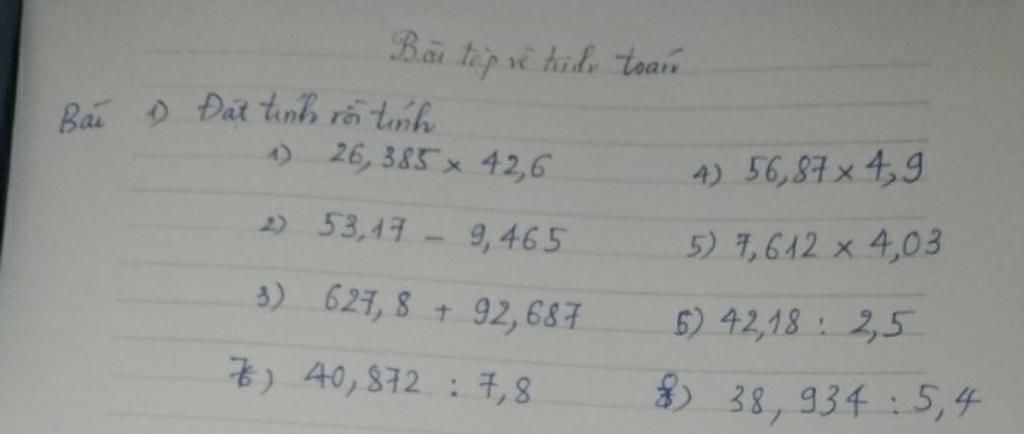 Bài tập về tính toán
Bài 1) Đặt tính rồi tính
1) 26,385 × 42,6 4) 56,87 × 4,9
2) 53,17 - 9,465 5) 7,612 × 4,03
3) 627,8 + 92,687 6) 42,18 : 2,5
7) 40,872 : 7,8 8) 38,934 : 5,4